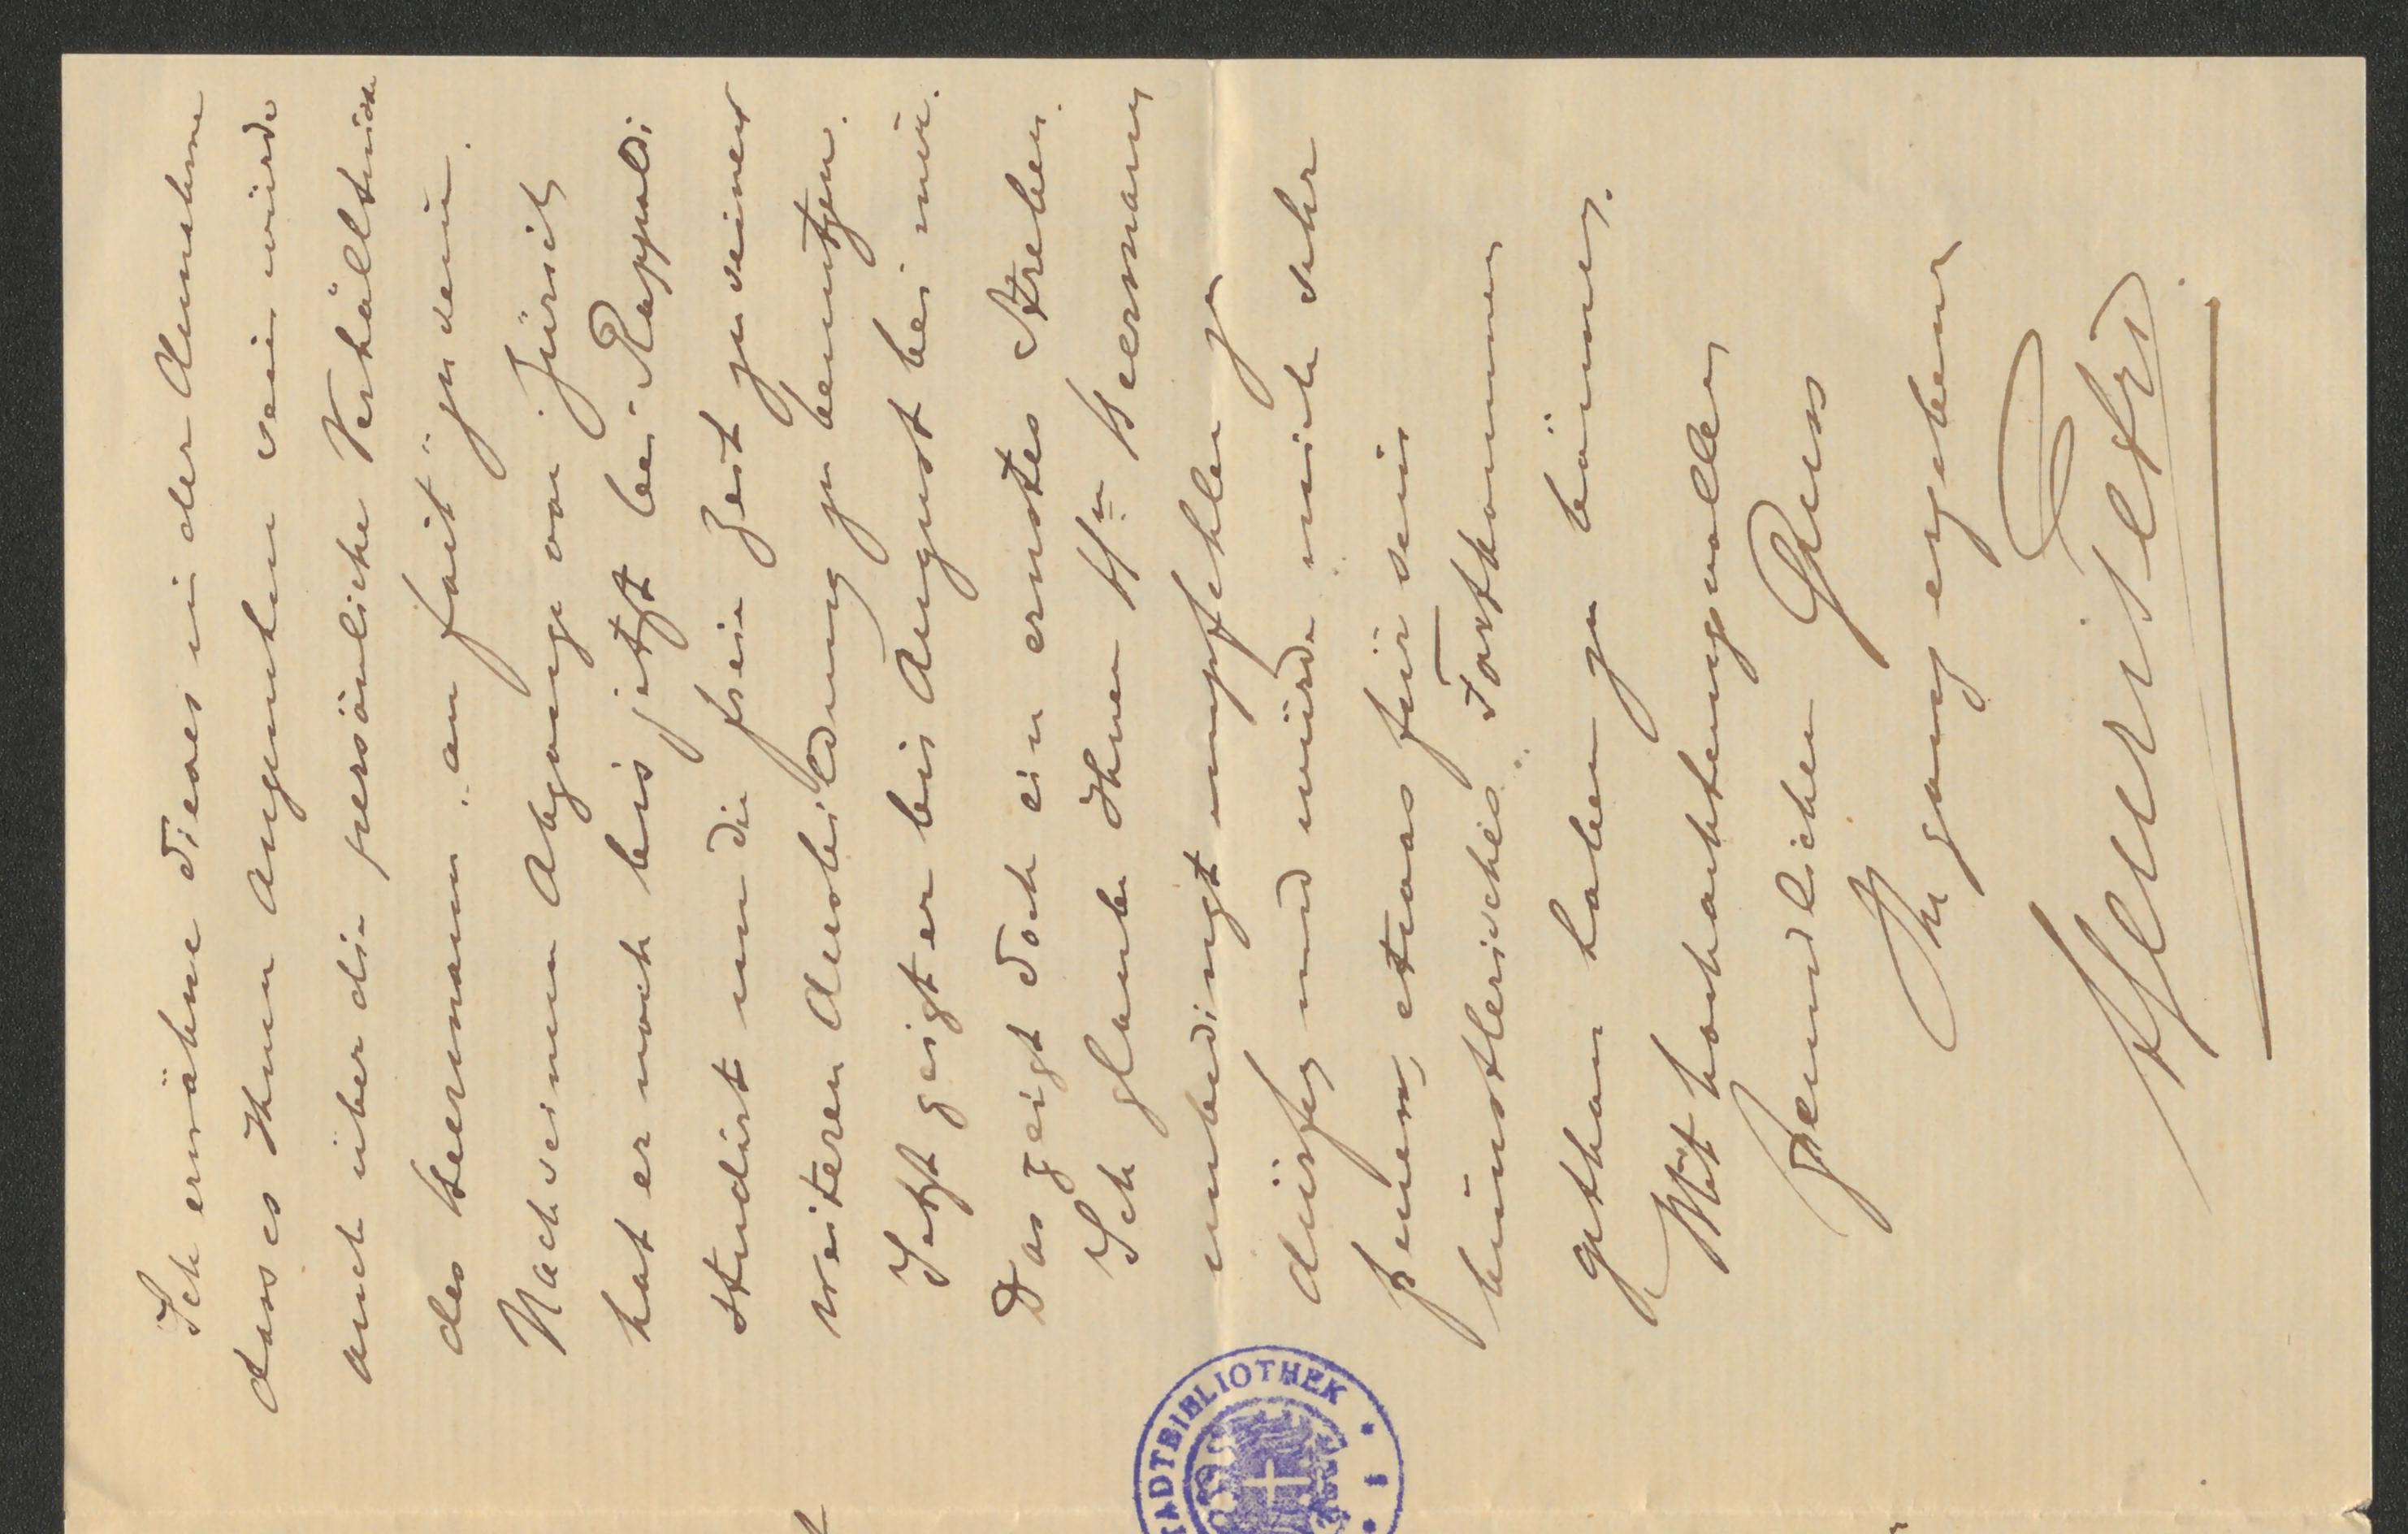 Ich erwähne dieses in der Annahme
dass es Ihnen angenehm sein wird
auch über die persönliche Verhältnisse
des Heermann „au fait" zu sein.
Nach seinem Abgange von Zürich
hat er noch bis jetzt bei Rappoldi
studirt um die freie Zeit zu seiner
weiteren Ausbildung zu benutzen.
Jetzt geigt er bis August bei mir.
Das zeigt doch ein ernstes Streben.
Ich glaube Ihnen Hrn Heermann
unbedingt empfehlen zu
dürfen und würde mich sehr
freuen, etwas für sein
künstlerisches Fortkommen
gethan haben zu können.
Mit hochachtungsvollem
freundlichen Gruss
Ihr ganz ergebener
STADTBIBLIOTHEK